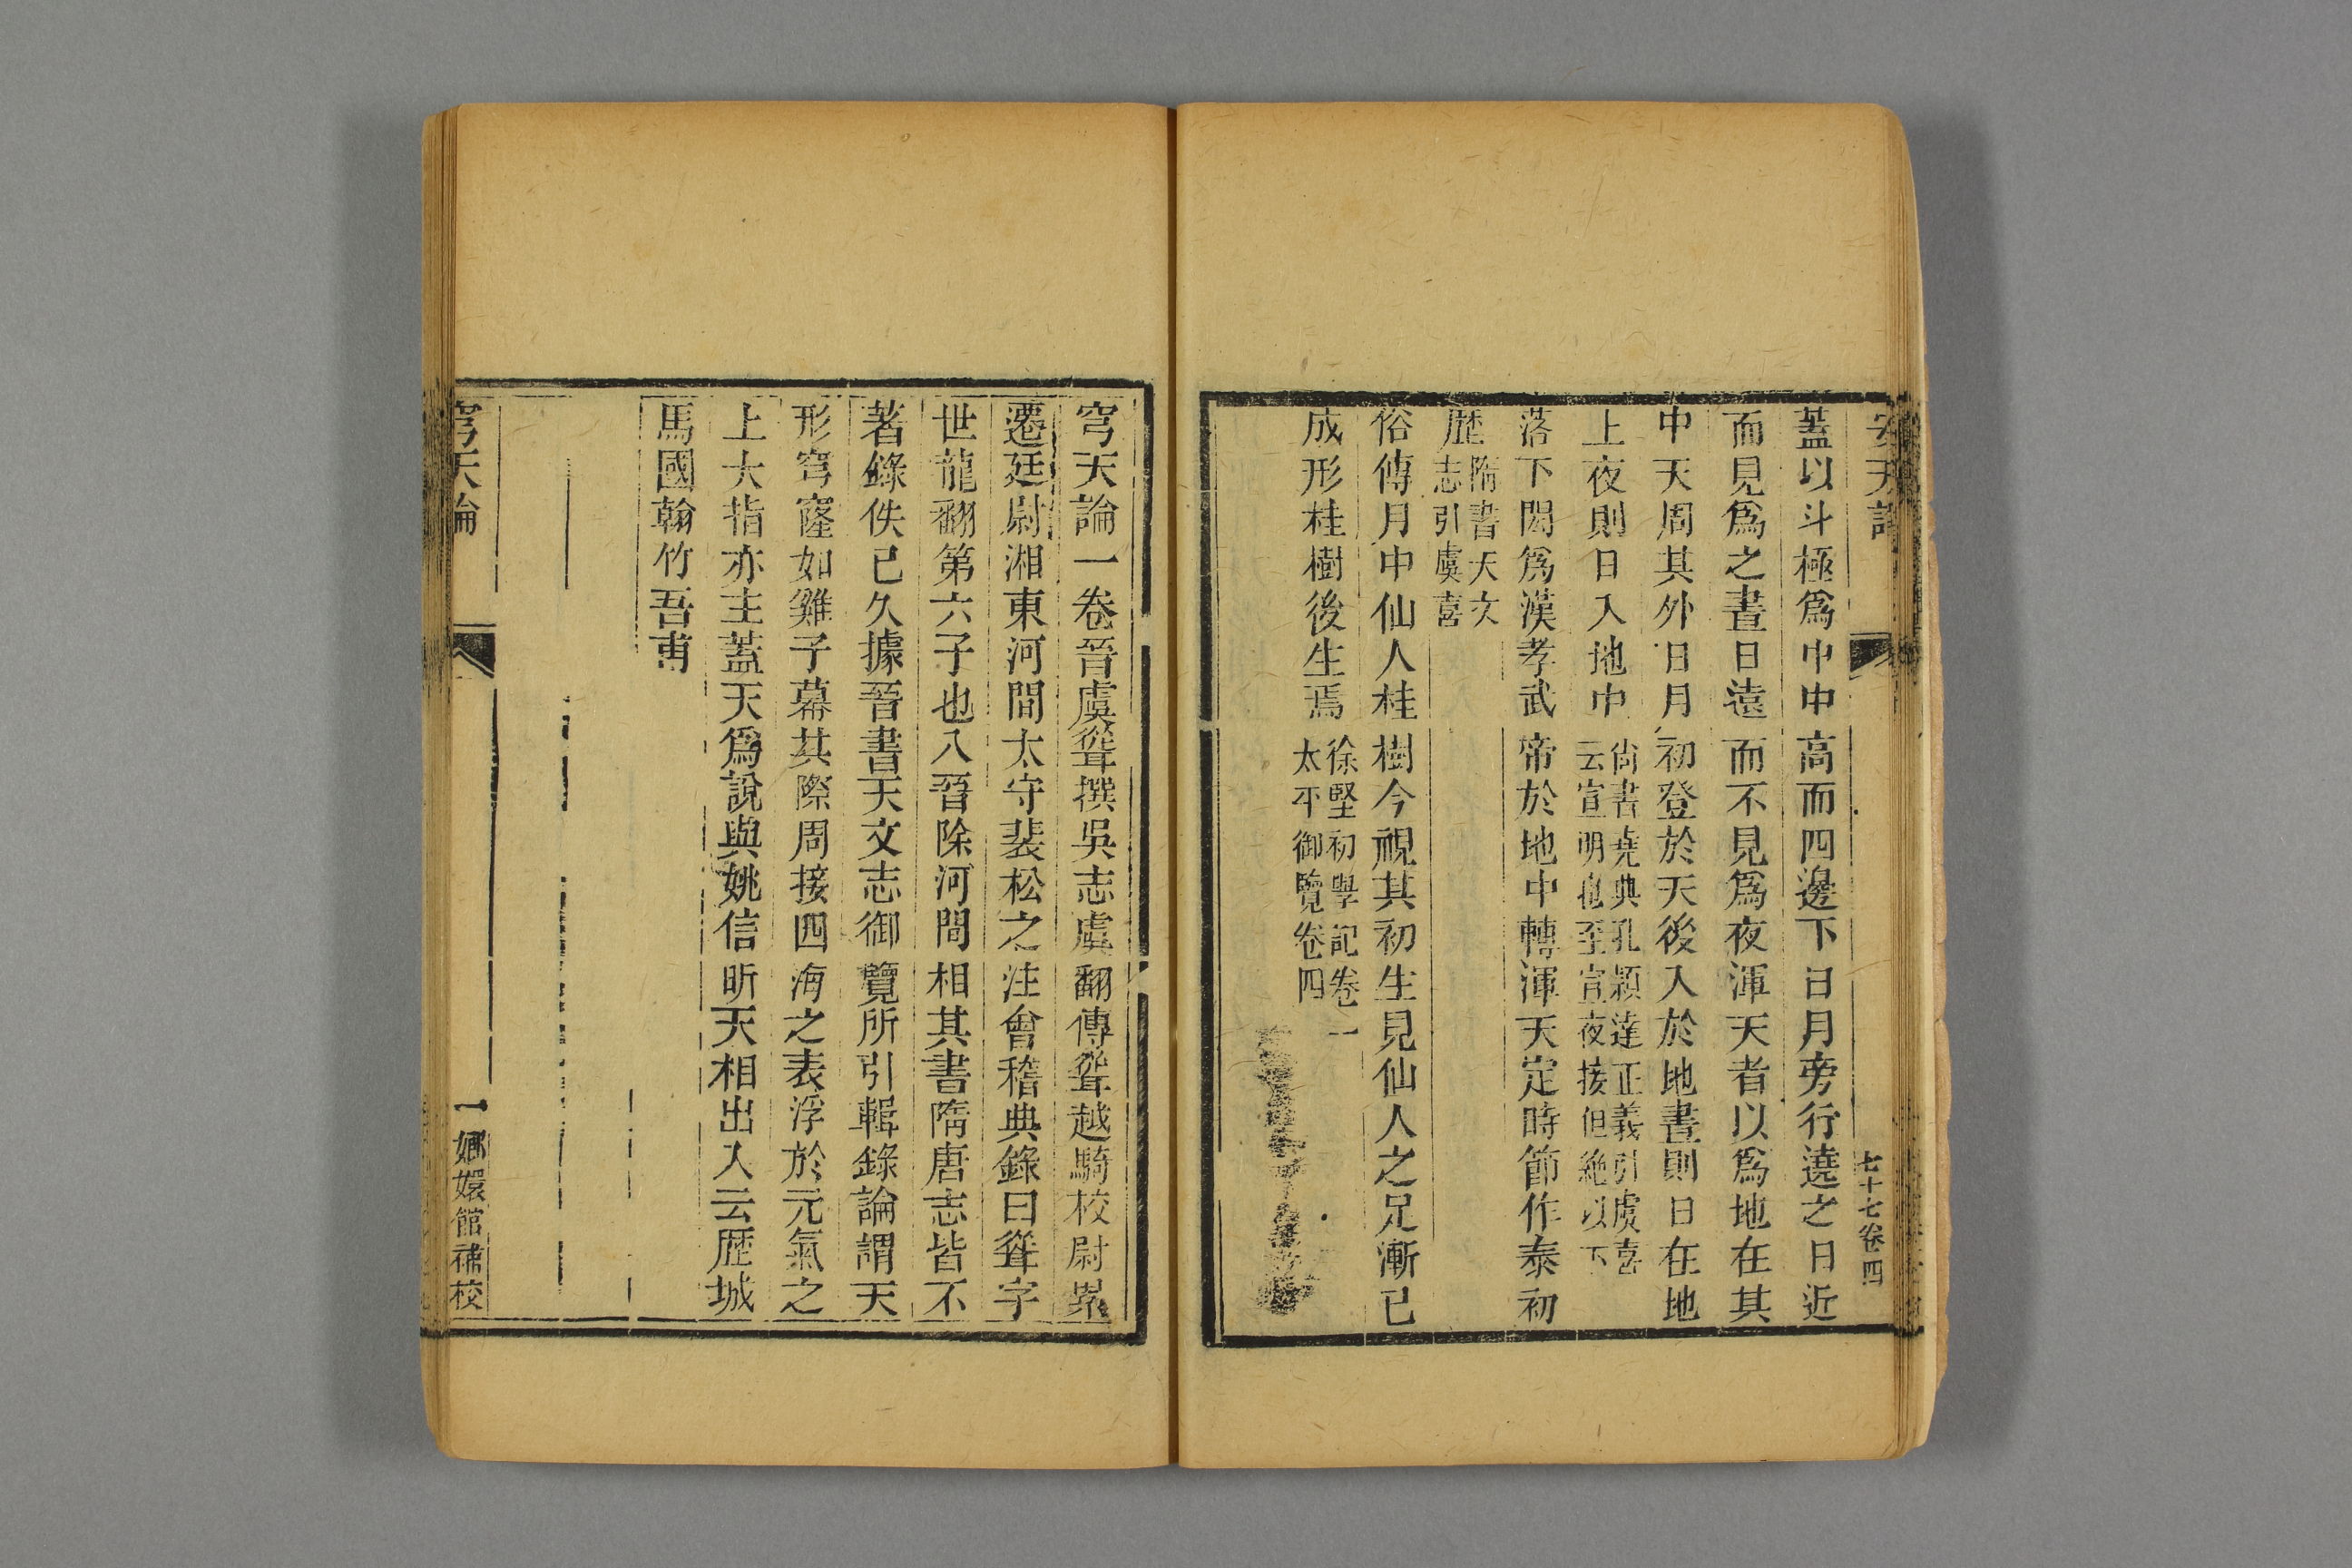 安天論
七十七卷四
蓋以斗極爲中中高而四邊下日月旁行遶之日近
而見爲之晝日遠而不見爲夜渾天者以爲地在其
中天周其外日月初登於天後入於地晝則日在地
上夜則日入地中尙書堯典孔穎達正義引虞喜
云宣明也至宣夜接但絶以下
落下閎爲漢孝武帝於地中轉渾天定時節作泰初
歷隋書天文
志引虞喜
俗傳月中仙人桂樹今視其初生見仙人之足漸已
成形桂樹後生焉徐堅初學記卷一
太平御覽卷四
穹天論一卷晉虞聳撰吳志虞翻傳聳越騎校尉累
遷廷尉湘東河間太守裴松之注會稽典錄曰聳字
世龍翻第六子也入晉除河間相其書隋唐志皆不
著錄佚已久據晉書天文志御覽所引輯錄論謂天
形穹窿如雞子幕其際周接四海之表浮於元氣之
上大指亦主蓋天爲說與姚信昕天相出入云歷城
馬國翰竹吾甫
穹天論
一
嫏嬛館補校